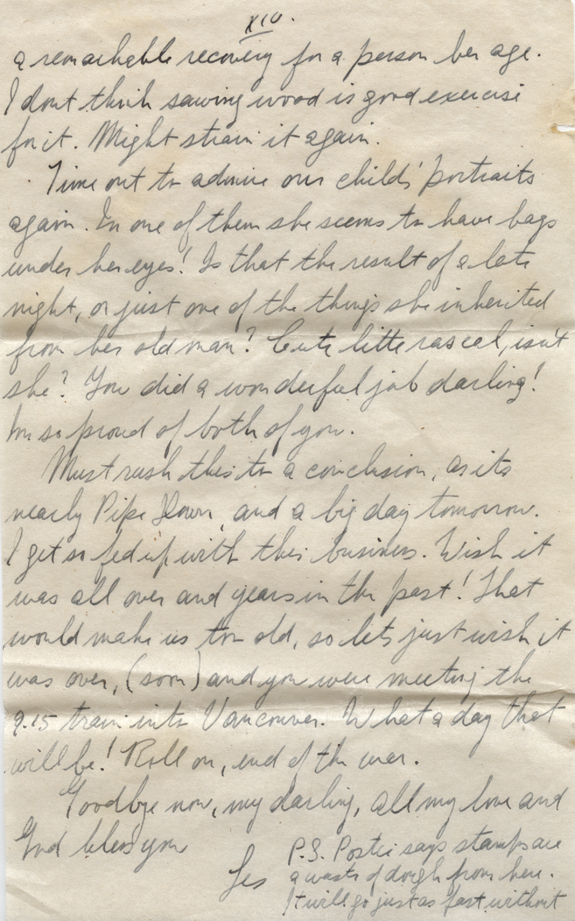 XIV.
a remarkable recovery for a person her age.
I dont think sawing wood is good exercise
for it. Might strain it again.
Time out to admire our childs' portraits
again. In one of them she seems to have bags
under her eyes! Is that the result of a late
night, or just one of the things she inherited
from her old man? Cute little rascal, isn't
she? You did a wonderful job darling!
Im so proud of both of you.
Must rush this to a conclusion, as its
nearly Pipe Down, and a big day tomorrow.
I get so fed up with this business. Wish it
was all over and years in the past! That
would make us too old, so lets just wish it
was over, (soon) and you were meeting the
9.15 train into Vancouver. What a day that
will be! Roll on, end of the war.
Goodbye now, my darling, all my love and
God bless you
Les
P.S. Postie says stamps are
a waste of dough from here.
It will go just as fast without